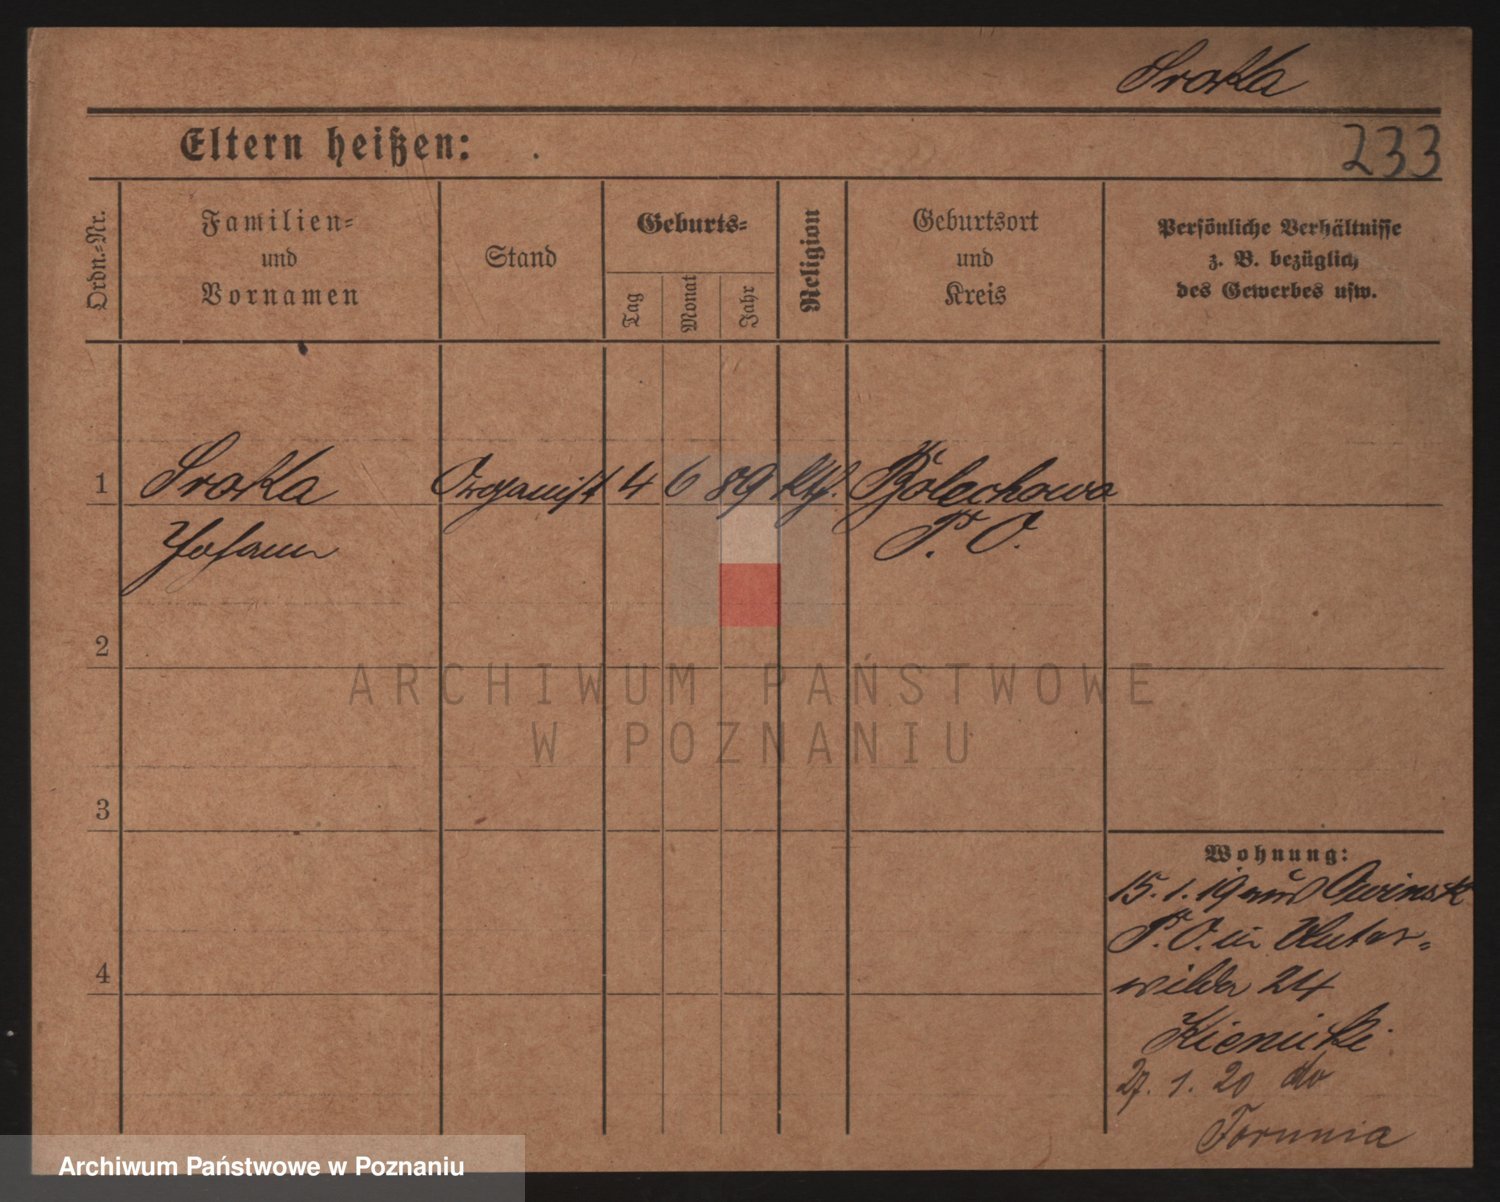 Sroka
Eltern heißen:
233
Ordn.-Nr.
Familien-
und
Vornamen
Stand
Geburts-
Tag
Monat
Jahr
Religion
Geburtsort
und
Kreis
Persönliche Verhältnisse
z. B. bezüglich
des Gewerbes usw.
1 Sroka Organist 4 6 89 kth. Bolechowo
Johann P. O.
2
3
4
Wohnung:
15. 1. 19 aus Owinsk
P. O. in Unter-
wilda 24
27. 1. 20 do
Torunia
ARCHIWUM PAŃSTWOWE
W POZNANIU
Archiwum Państwowe w Poznaniu